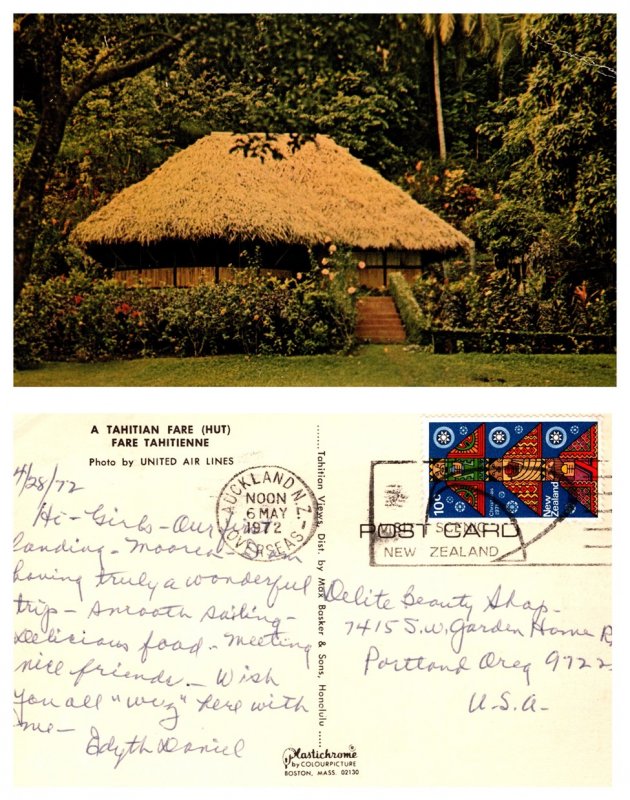 A TAHITIAN FARE (HUT)
FARE TAHITIENNE
Photo by UNITED AIR LINES
4/28/72
Hi - Girls - Our first
landing - Moorea
having truly a wonderful
trip - smooth sailing -
delicious food - meeting
nice friends. - Wish
you all "wuz" here with
me -
Edyth Daniel
Tahitian Views, Dist. by Max Basker & Sons, Honolulu
AUCKLAND N.Z.
NOON
6 MAY
1972
OVERSEAS
10c
New
Zealand
POST CARD
VISIT SCENIC
NEW ZEALAND
Delite Beauty Shop -
7415 S.W. Garden Home R
Portland Oreg 9722
U.S.A. -
Plastichrome
by COLOURPICTURE
BOSTON, MASS. 02130